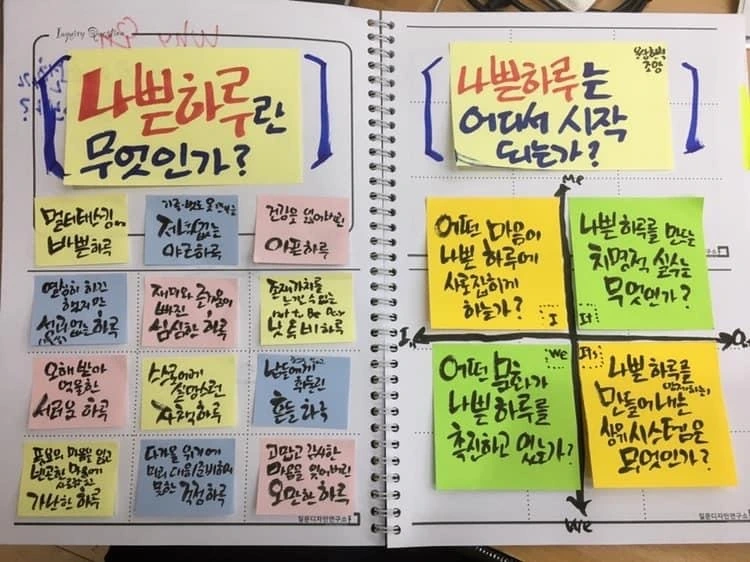 Inquiry Question
나쁜하루란
무엇인가?
멀티태스킹
바쁜하루
저녁없는
야근하루
건강을 잃어버린
아픈하루
열심히 하긴
했지만
성과없는 하루
재미와 즐거움이
빠진
심심한 하루
존재가치를
느낄 수 없는
낫 투 비 하루
오해 받아
억울한
서러운 하루
스스로에게
실망스런
자책하루
남들에게
휘둘린
흔들 하루
풍요의 마음을 잃고
빈곤한 마음에
가난한 하루
다가올 위기에
미리 대응/준비하지
못한 걱정하루
고맙고 감사한
마음을 잊어버린
오만한 하루
질문디자인연구소
나쁜하루는
어디서 시작
되는가?
Me
어떤 마음이
나쁜 하루에
사로잡히게
하는가?
I
나쁜 하루를 만드는
치명적 실수는
무엇인가?
It
어떤 문화가
나쁜 하루를
촉진하고 있는가?
We
Its
나쁜 하루를
만들어내는
시스템은
무엇인가?
We
질문디자인연구소